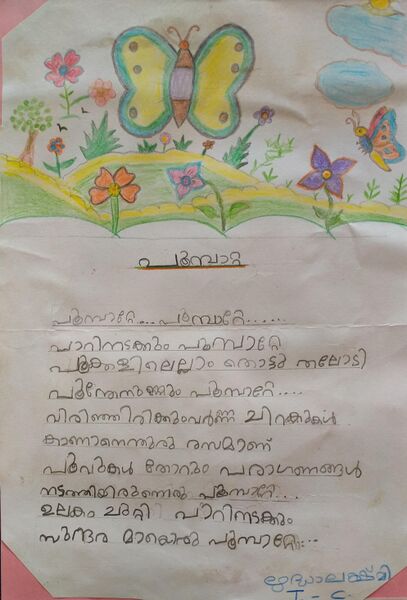 പൂമ്പാറ്റ
പൂമ്പാറ്റേ.... പൂമ്പാറ്റേ......
പാറിനടക്കും പൂമ്പാറ്റേ
പൂക്കളിലെല്ലാം തൊട്ടു തലോടി
പൂന്തേനുണ്ണും പൂമ്പാറ്റേ....
വിരിഞ്ഞിരിക്കുംവർണ്ണ ചിറകുകൾ
കാണാനെന്തുരു രസമാണ്
പൂവുകൾ തോറും പരാഗണങ്ങൾ
നടത്തിയിരുന്നൊരു പൂമ്പാറ്റേ...
ഉലകം ചുറ്റി പാറിനടക്കും
സുന്ദര മായൊരു പൂമ്പാറ്റേ...
I - C